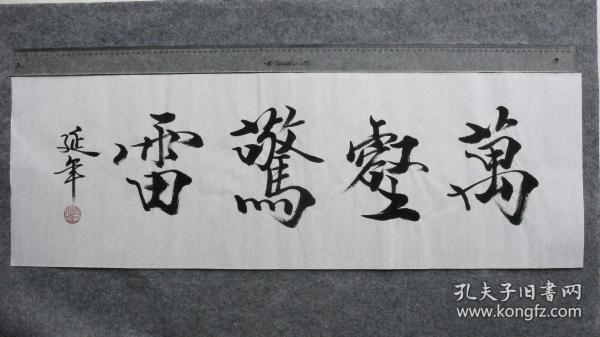 萬壑驚雷
延年
孔夫子旧書网
www.kongfz.com